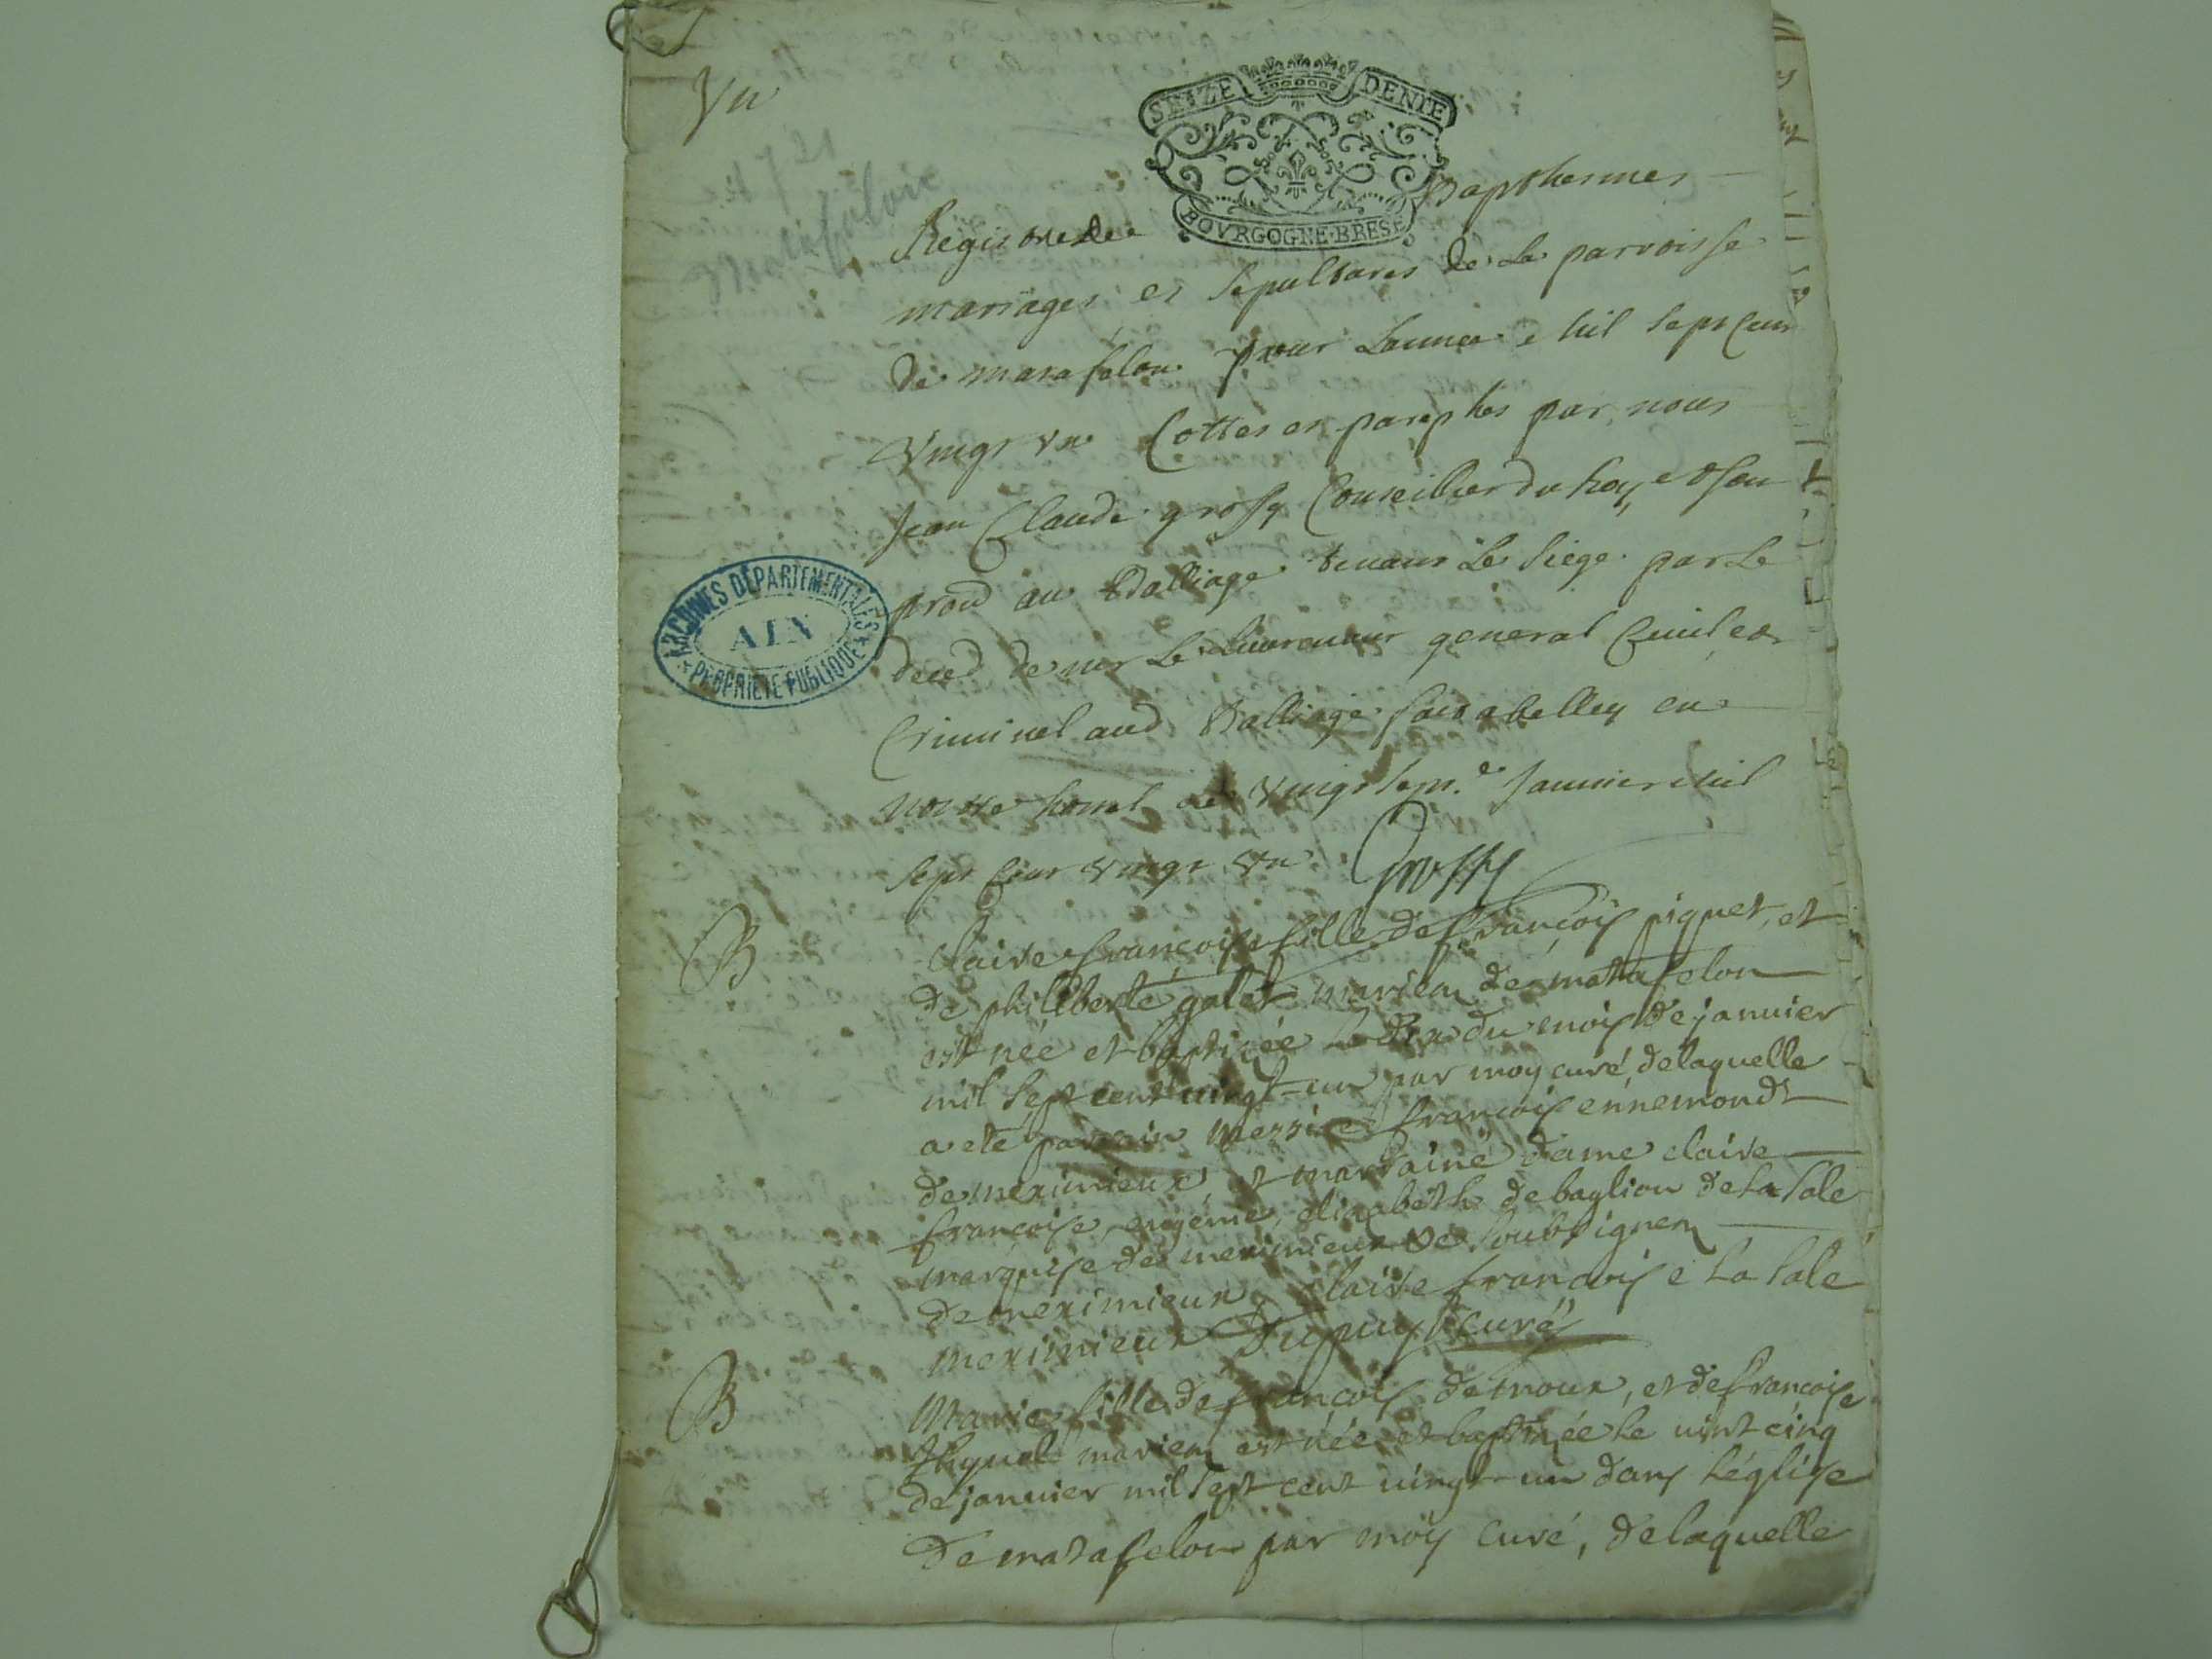 Vn
SEIZE DENIE
BOVRGOGNE·BRESE
1721
Matafelon
Registre des Bapthesmes
mariages et sepultures de la parroisse
de matafelon pour lannee mil sept cent
vingt vn Cottes et paraphes par nous
Jean Claude grossy Conseillier du Roy et son
au Balliage tenant le siege par le
deced de mr le lieutenant general Ciuil et
Criminel aud Balliage fait a belley en
nostre hotel ce vingt sept.e Januier mil
sept cent vingt vn Grossy
ARCHIVES DÉPARTEMENTALES
AIN
PROPRIÉTÉ PUBLIQUE
B
Claire françoise fille de françois piquet, et
de philiberte galet mariez de matafelon
est née et baptizée le dix du mois de januier
mil sept cent vingt-un par moy curé, delaquelle
a eté parrain messire françois ennemondt
de meximieux et marraine dame claire
françoise eugenie, elizabeth de baglion de la sale
marquise de meximieux soubsignez
de meximieux claire françoise la sale
meximieux Dupuy Curé
B
Marie fille de françois demoux, et de françoise
mariez est née et baptizée le uint cinq
de januier mil sept cent uingt-un dans l'église
de matafelon par moy curé, delaquelle